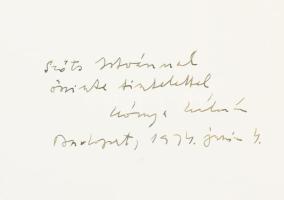 Szőts Istvánnak
őszinte tisztelettel
Kónya Kálmán
Budapest, 1974. június 4.